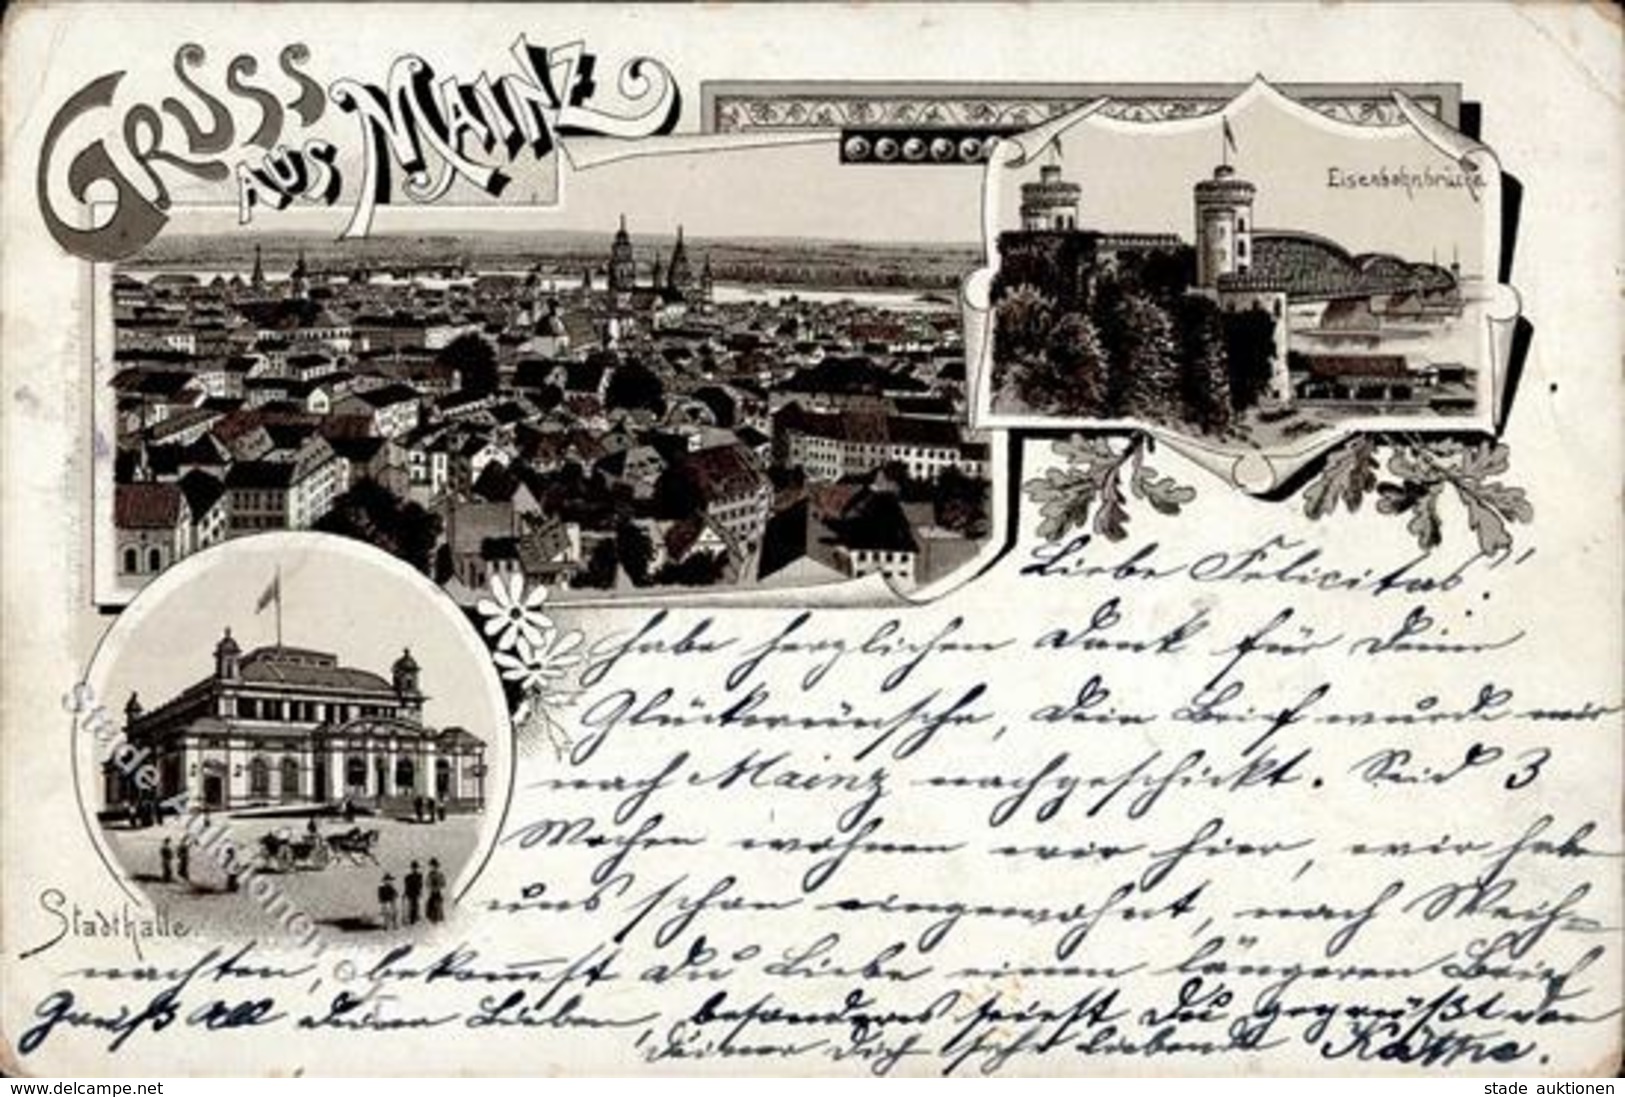 GRUSS
AUS MAINZ
Eisenbahnbrücke
Stadthalle.
Liebe Felicitas!
habe herzlichen Dank für Deine
Glückwünsche, Dein Brief wurde mir
nach Mainz nachgeschickt. Seid 3
Wochen wohnen wir hier, wir habe
uns schon eingewohnt, nach Weih-
nachten, bekommst Du Liebe einen längeren Brief
Gruß all Deine Lieben, besonders seiest Du gegrüßt von
Deiner Dich sehr liebende Käthe.
Stade Auktionen
www.delcampe.net
stade auktionen